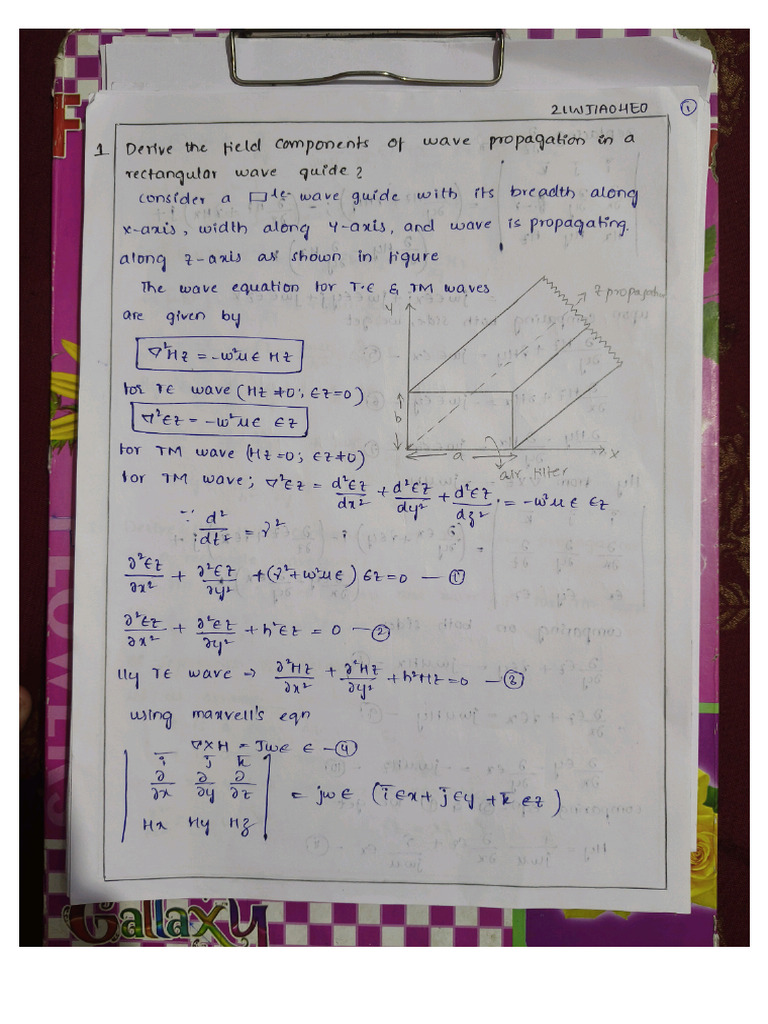 21WJ1A04E0 1
1 Derive the field components of wave propagation in a
rectangular wave guide?
consider a ▭le wave guide with its breadth along
x-axis, width along Y-axis, and wave is propagating.
along z-axis as shown in figure
The wave equation for T.E & TM waves
are given by
∇²Hz = -ω²με Hz
for TE wave (Hz ≠ 0; Ez = 0)
∇²Ez = -ω²με Ez
for TM wave (Hz = 0; Ez ≠ 0)
y
z propagation
b
a
x
air filter
for TM wave; ∇²Ez = d²Ez/dx² + d²Ez/dy² + d²Ez/dz² = -ω²με Ez
∵ d²/dt² = γ²
∂²Ez/∂x² + ∂²Ez/∂y² + (γ² + ω²με) Ez = 0 — ①
∂²Ez/∂x² + ∂²Ez/∂y² + h²Ez = 0 — ②
lly TE wave → ∂²Hz/∂x² + ∂²Hz/∂y² + h²Hz = 0 — ③
using maxvell's eqn
∇×H = Jωε E — ④
i j k
∂/∂x ∂/∂y ∂/∂z = jωε (i Ex + j Ey + k Ez)
Hx Hy Hz
FLOWERS
Gallaxy